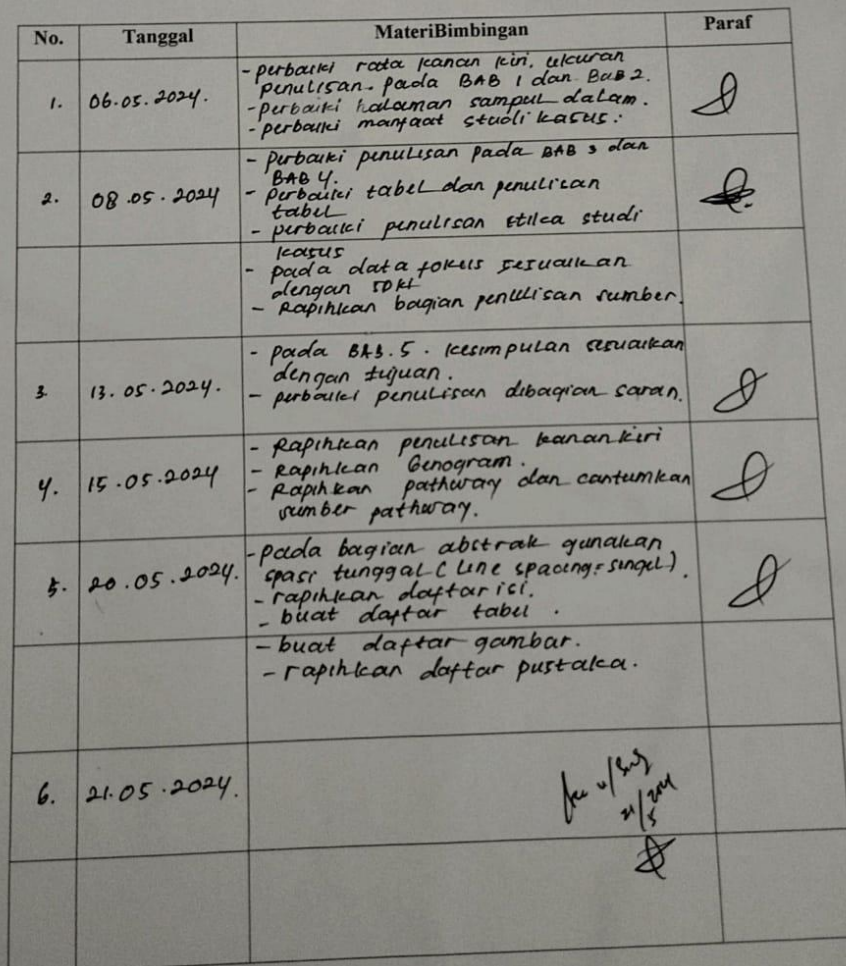 No. Tanggal MateriBimbingan Paraf
- perbaiki rata kanan kiri, ukuran
penulisan. pada BAB 1 dan BaB 2.
1. 06.05.2024. - perbaiki halaman sampul dalam.
- perbaiki manfaat studi kasus.
- perbaiki penulisan pada BAB 3 dan
BAB 4.
2. 08.05.2024 - perbaiki tabel dan penulisan
tabel
- perbaiki penulisan etika studi
kasus
- pada data fokus sesuaikan
dengan SDKI
- Rapihkan bagian penulisan sumber.
- pada BAB.5. kesimpulan sesuaikan
3. 13.05.2024. dengan tujuan.
- perbaiki penulisan dibagian saran.
- Rapihkan penulisan kanan kiri
4. 15.05.2024 - Rapihkan Genogram.
- Rapihkan pathway dan cantumkan
sumber pathway.
- pada bagian abstrak gunakan
5. 20.05.2024. spasi tunggal (Line spacing = singel).
- rapihkan daftar isi.
- buat daftar tabel.
- buat daftar gambar.
- rapihkan daftar pustaka.
6. 21.05.2024.